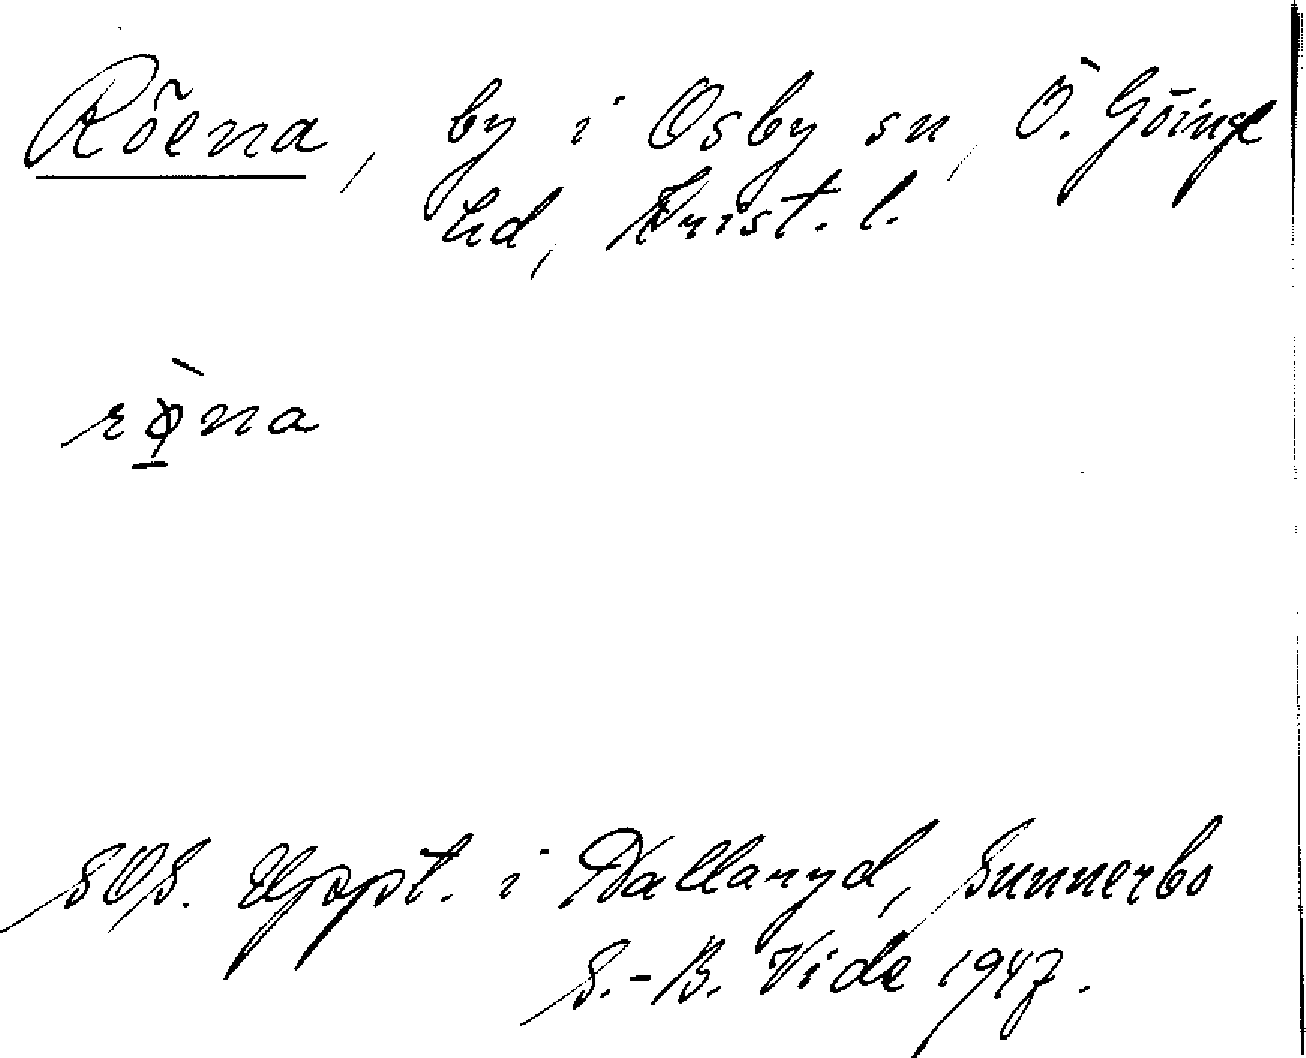 Röena, by i Osby sn, Ö. Göinge
hd, Krist. l.
rø̀na
SOS. Uppt. i Hallaryd, Sunnerbo
S.-B. Vide 1947.